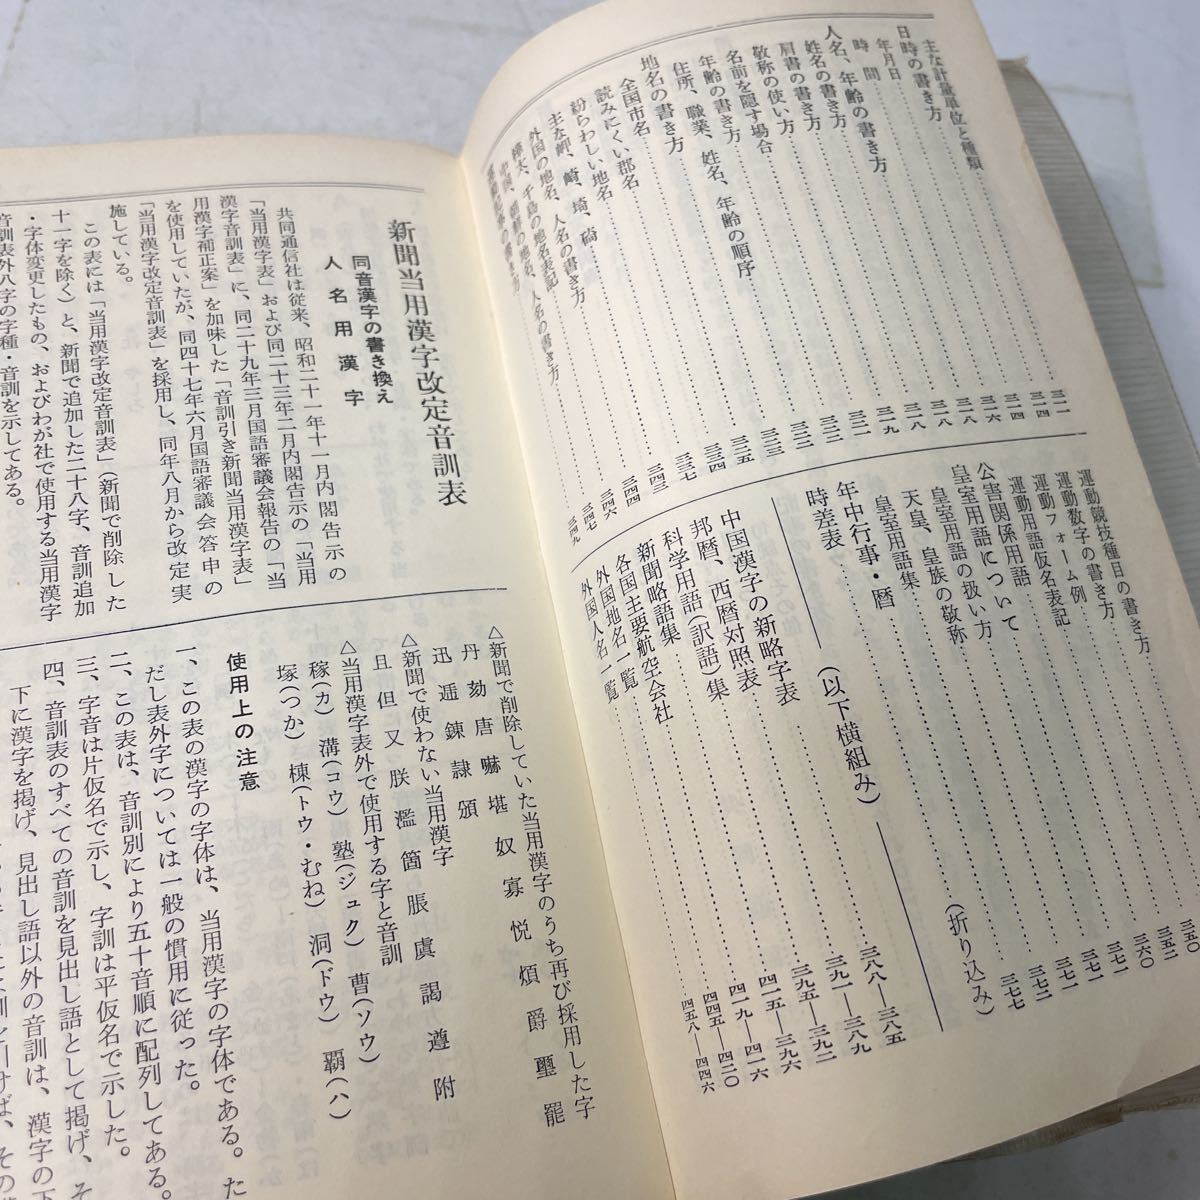 主な計量単位と種類……三一一
日時の書き方……三一四
年月日……三一四
時間……三一六
人名、年齢の書き方……三一八
姓名の書き方……三一八
肩書の書き方……三一八
敬称の使い方……三一九
名前を隠す場合……三二一
年齢の書き方……三二二
住所、職業、姓名、年齢の順序……三二三
地名の書き方……三二三
全国市名……三二五
読みにくい郡名……三三四
紛らわしい地名……三三七
主な岬、崎、埼、碕……三四三
外国の地名、人名の書き方……三四四
樺太、千島の地名表記……三四六
中国、朝鮮の地名、人名の書き方……三四七
運動記事の書き方……三四九
運動競技種目の書き方……三五〇
運動数字の書き方……三五二
運動フォーム例……三六〇
運動用語仮名表記……三七一
公害関係用語……三七一
皇室用語について……三七一
皇室用語の扱い方……三七二
天皇、皇族の敬称……三七七
皇室用語集
年中行事・暦
時差表……(折り込み)
――(以下横組み)――
中国漢字の新略字表……三八八―三八五
邦暦、西暦対照表……三九一―三八九
科学用語(訳語)集……三九五―三九二
新聞略語集……四一五―三九六
各国主要航空会社……四一九―四一六
外国地名一覧……四四五―四二〇
外国人名一覧……四五八―四四六
新聞当用漢字改定音訓表
同音漢字の書き換え
人名用漢字
共同通信社は従来、昭和二十一年十一月内閣告示の
「当用漢字表」および同二十三年二月内閣告示の「当用
漢字音訓表」に、同二十九年三月国語審議会報告の「当
用漢字補正案」を加味した「音訓引き新聞当用漢字表」
を使用していたが、同四十七年六月国語審議会答申の
「当用漢字改定音訓表」を採用し、同年八月から改定実
施している。
この表には「当用漢字改定音訓表」(新聞で削除した
十一字を除く)と、新聞で追加した二十八字、音訓追加
・字体変更したもの、およびわが社で使用する当用漢字
音訓表外八字の字種・音訓を示してある。
△新聞で削除していた当用漢字のうち再び採用した字
丹 劾 唐 嚇 堪 奴 寡 悦 煩 爵 璽 罷
迅 逓 錬 隷 頒
△新聞で使わない当用漢字
且 但 又 朕 濫 箇 脹 虞 謁 遵 附
△当用漢字表外で使用する字と音訓
稼(カ) 溝(コウ) 塾(ジュク) 曹(ソウ)
塚(つか) 棟(トウ・むね) 洞(ドウ) 覇(ハ)
使用上の注意
一、この表の漢字の字体は、当用漢字の字体である。た
だし表外字については一般の慣用に従った。
二、この表は、音訓別により五十音順に配列してある。
三、字音は片仮名で示し、字訓は平仮名で示した。
四、音訓表のすべての音訓を見出し語として掲げ、そ
下に漢字を掲げ、見出し語以外の音訓は、漢字の下